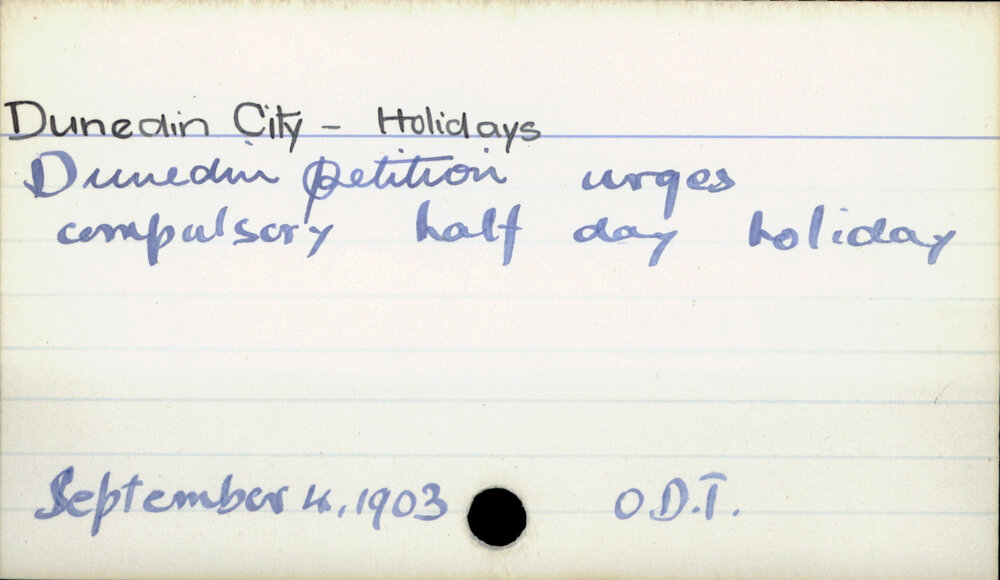 Dunedin City - Holidays
Dunedin petition urges
compulsory half day holiday
September 4, 1903 O.D.T.